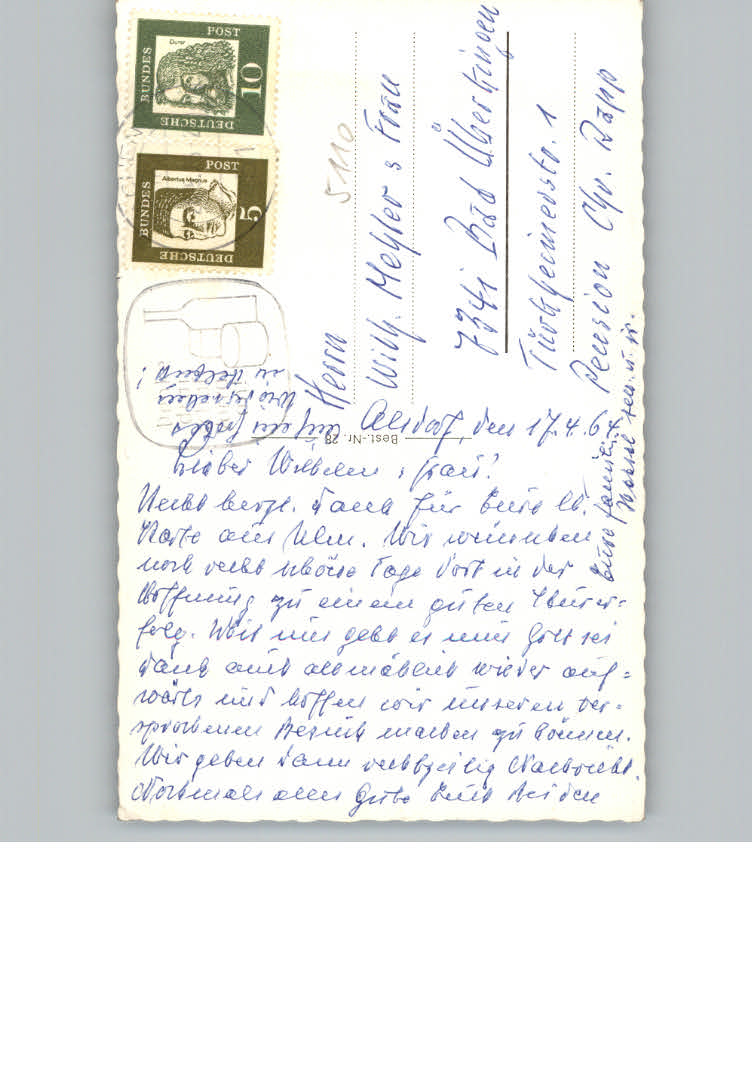 DEUTSCHE
BUNDES
POST
Dürer
10
DEUTSCHE
BUNDES
POST
Albertus Magnus
5
5110
Herrn
Wilh. Metzler & Frau
7341 Bad Überkingen
Türkheimerstr. 1
Pension Chr. Rapp
Best.-Nr. 28
Alsdorf, den 17.4.64
Lieber Wilhelm & Frau!
Recht herzl. Dank für Eure lb.
Karte aus Ulm. Wir wünschen
noch recht schöne Tage dort in der
Hoffnung zu einem guten Kurer-
folg. Mit uns geht es nun Gott sei
Dank auch allmählich wieder auf-
wärts und hoffen wir unseren ver-
sprochenen Besuch machen zu können.
Wir geben dann rechtzeitig Nachricht.
Nochmals alles Gute Euch Beiden
Auf ein frohes
Wiedersehen
in
Eure Familie
sen. u. jr.